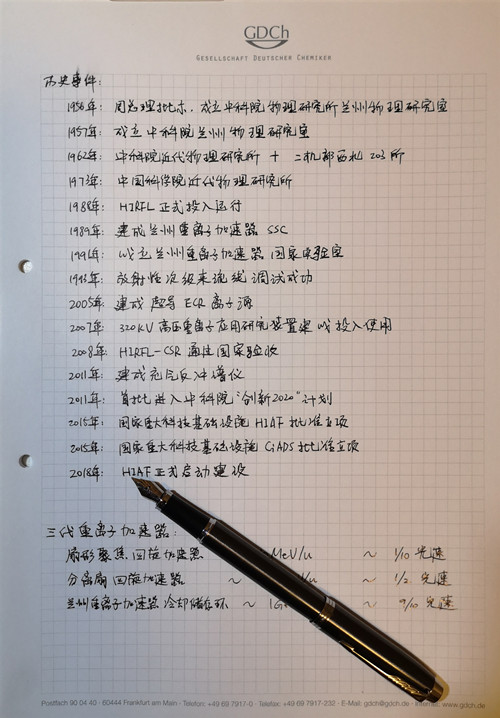 GDCh
GESELLSCHAFT DEUTSCHER CHEMIKER
历史事件:
1956年: 周总理批示,成立中科院物理研究所兰州物理研究室
1957年: 成立中科院兰州物理研究室
1962年: 中科院近代物理研究所 + 二机部西北203所
1973年: 中国科学院近代物理研究所
1988年: HIRFL正式投入运行
1989年: 建成兰州重离子加速器 SSC
1991年: 成立兰州重离子加速器国家实验室
放射性次级束流线调试成功
2005年: 建成超导ECR离子源
2007年: 320kV高压重离子应用研究装置建成投入使用
2008年: HIRFL-CSR通过国家验收
2011年: 建成充气反冲谱仪
2011年: 首批进入中科院"创新2020"计划
2015年: 国家重大科技基础设施HIAF批准立项
2015年: 国家重大科技基础设施CiADS批准立项
2018年: HIAF正式启动建设
三代重离子加速器:
扇形聚焦回旋加速器 MeV/u ~ 1/10 光速
分离扇回旋加速器 ~ /u ~ 1/2 光速
兰州重离子加速器冷却储存环 ~ 1G ~ 9/10 光速
Postfach 90 04 40 · 60444 Frankfurt am Main · Telefon: +49 69 7917-0 · Telefax: +49 69 7917-232 · E-Mail: gdch@gdch.de · Internet: www.gdch.de